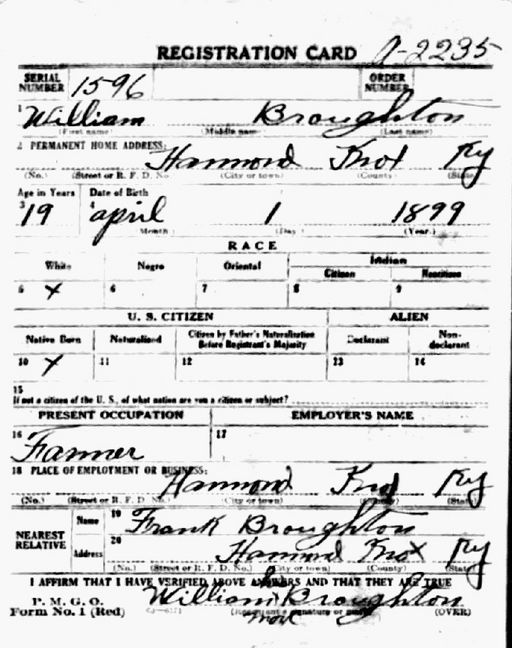 REGISTRATION CARD A-2235
SERIAL NUMBER 1596 ORDER NUMBER
1 William Broughton
(First name) (Middle name) (Last name)
2 PERMANENT HOME ADDRESS:
Hammond Knox Ky
(No.) (Street or R. F. D. No.) (City or town) (County) (State)
Age in Years Date of Birth
3 19 4 April 1 1899
(Month) (Day) (Year)
RACE
White Negro Oriental Indian
Citizen Noncitizen
5 X 6 7 8 9
U. S. CITIZEN ALIEN
Native Born Naturalized Citizen by Father's Naturalization Before Registrant's Majority Declarant Non-declarant
10 X 11 12 13 14
15
If not a citizen of the U. S., of what nation are you a citizen or subject?
PRESENT OCCUPATION EMPLOYER'S NAME
16 Farmer 17
18 PLACE OF EMPLOYMENT OR BUSINESS:
Hammond Knox Ky
(No.) (Street or R. F. D. No.) (City or town) (County) (State)
NEAREST RELATIVE Name 19 Frank Broughton
Address 20 Hammond Knox Ky
(No.) (Street or R. F. D. No.) (City or town) (County) (State)
I AFFIRM THAT I HAVE VERIFIED ABOVE ANSWERS AND THAT THEY ARE TRUE
P. M. G. O.
Form No. 1 (Red) William his Broughton
(Registrant's signature or mark) (OVER)
mark